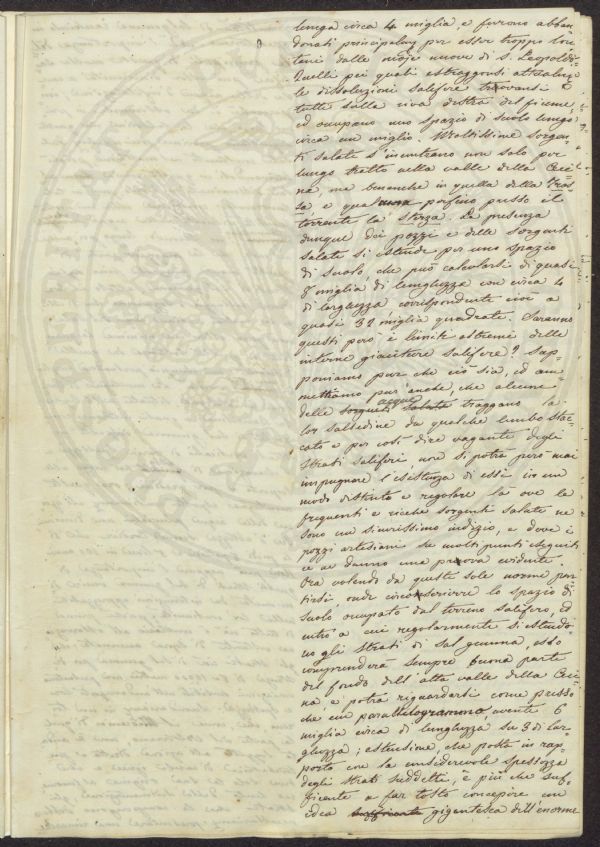 lunga circa 4 miglia, e furono abban
donati principalmy per esser troppo lon
tani dalle moje nuove di S. Leopoldo.
Quelli pei quali estraggonsi attualmy
le dissoluzioni salifere trovansi
tutte sulla riva destra del fiume,
ed occupano uno spazio di suolo lungo
circa un miglio. Moltissime sorgen
ti salate s'incontrano non solo per
lungo tratto nella valle della Ceci
na, ma benanche in quella della Tros
sa e perfino presso il
torrente la Sterza. La presenza
dunque dei pozzi e delle sorgenti
salate si estende per uno spazio
di suolo, che può calcolarsi di quasi
8 miglia di lunghezza con circa 4
di larghezza corrispondente cioè a
quasi 32 miglia quadrate. Saranno
questi però i limiti estremi delle
interne giaciture salifere? Sup=
poniamo pure che ciò sia, ed am=
mettiamo pur anche, che alcune
delle sorgenti salate acque traggano la
lor salsedine da qualche lembo stac
cato e per così dire vagante degli
strati saliferi non si potrà però mai
impugnare l'esistenza di essi in un
modo distinto e regolare là ove le
frequenti e ricche sorgenti salate ne
sono un sicurissimo indizio, e dove i
pozzi artesiani su molti punti eseguiti
ce ne danno una prova evidente.
Ora volendo da queste sole norme par
tirsi, onde circonscrivere lo spazio di
suolo occupato dal terreno salifero, ed
entro a cui regolarmente si estendo=
no gli strati di sal gemma, esso
comprenderà sempre buona parte
del fondo dell'alta valle della Ceci
na, e potrà riguardarsi come presso
che un parallelogrammo, avente 6
miglia circa di lunghezza su 3 di lar=
ghezza; estensione, che posta in rap=
porto con la considerevole spessezza
degli strati suddetti, è più che suf=
ficiente a far tosto concepire un
idea sufficiente gigantesca dell'enorme